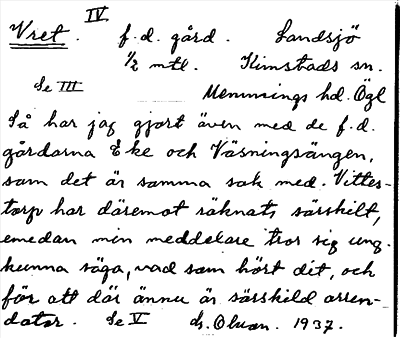 IV
Vret. f.d. gård. Landsjö
1/2 mtl. Kimstads sn.
Se III Memmings hd. Ögl
Så har jag gjort även med de f.d.
gårdarna Eke och Väsningsängen,
som det är samma sak med. Vittes-
torp har däremot räknats särskilt,
emedan min meddelare tror sig ung.
kunna säga, vad som hört dit, och
för att där ännu är särskild arren-
dator. Se V 1937.